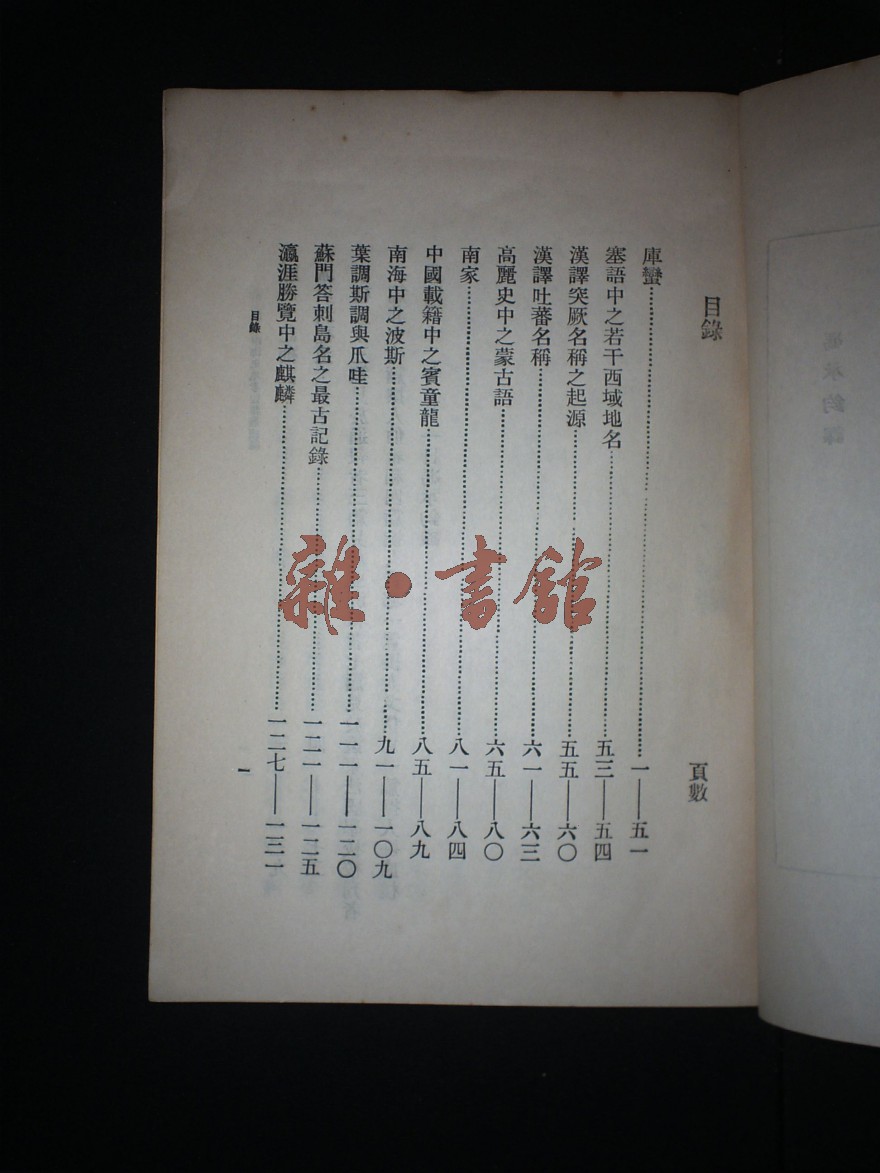 目錄 頁數
庫蠻 一——五一
塞語中之若干西域地名 五三——五四
漢譯突厥名稱之起源 五五——六〇
漢譯吐蕃名稱 六一——六三
高麗史中之蒙古語 六五——八〇
南家 八一——八四
中國載籍中之賓童龍 八五——八九
南海中之波斯 九一——一〇九
葉調斯調與爪哇 一一一——一二〇
蘇門答剌島名之最古記錄 一二一——一二五
瀛涯勝覽中之麒麟 一二七——一三一
目錄 一
雜·書館